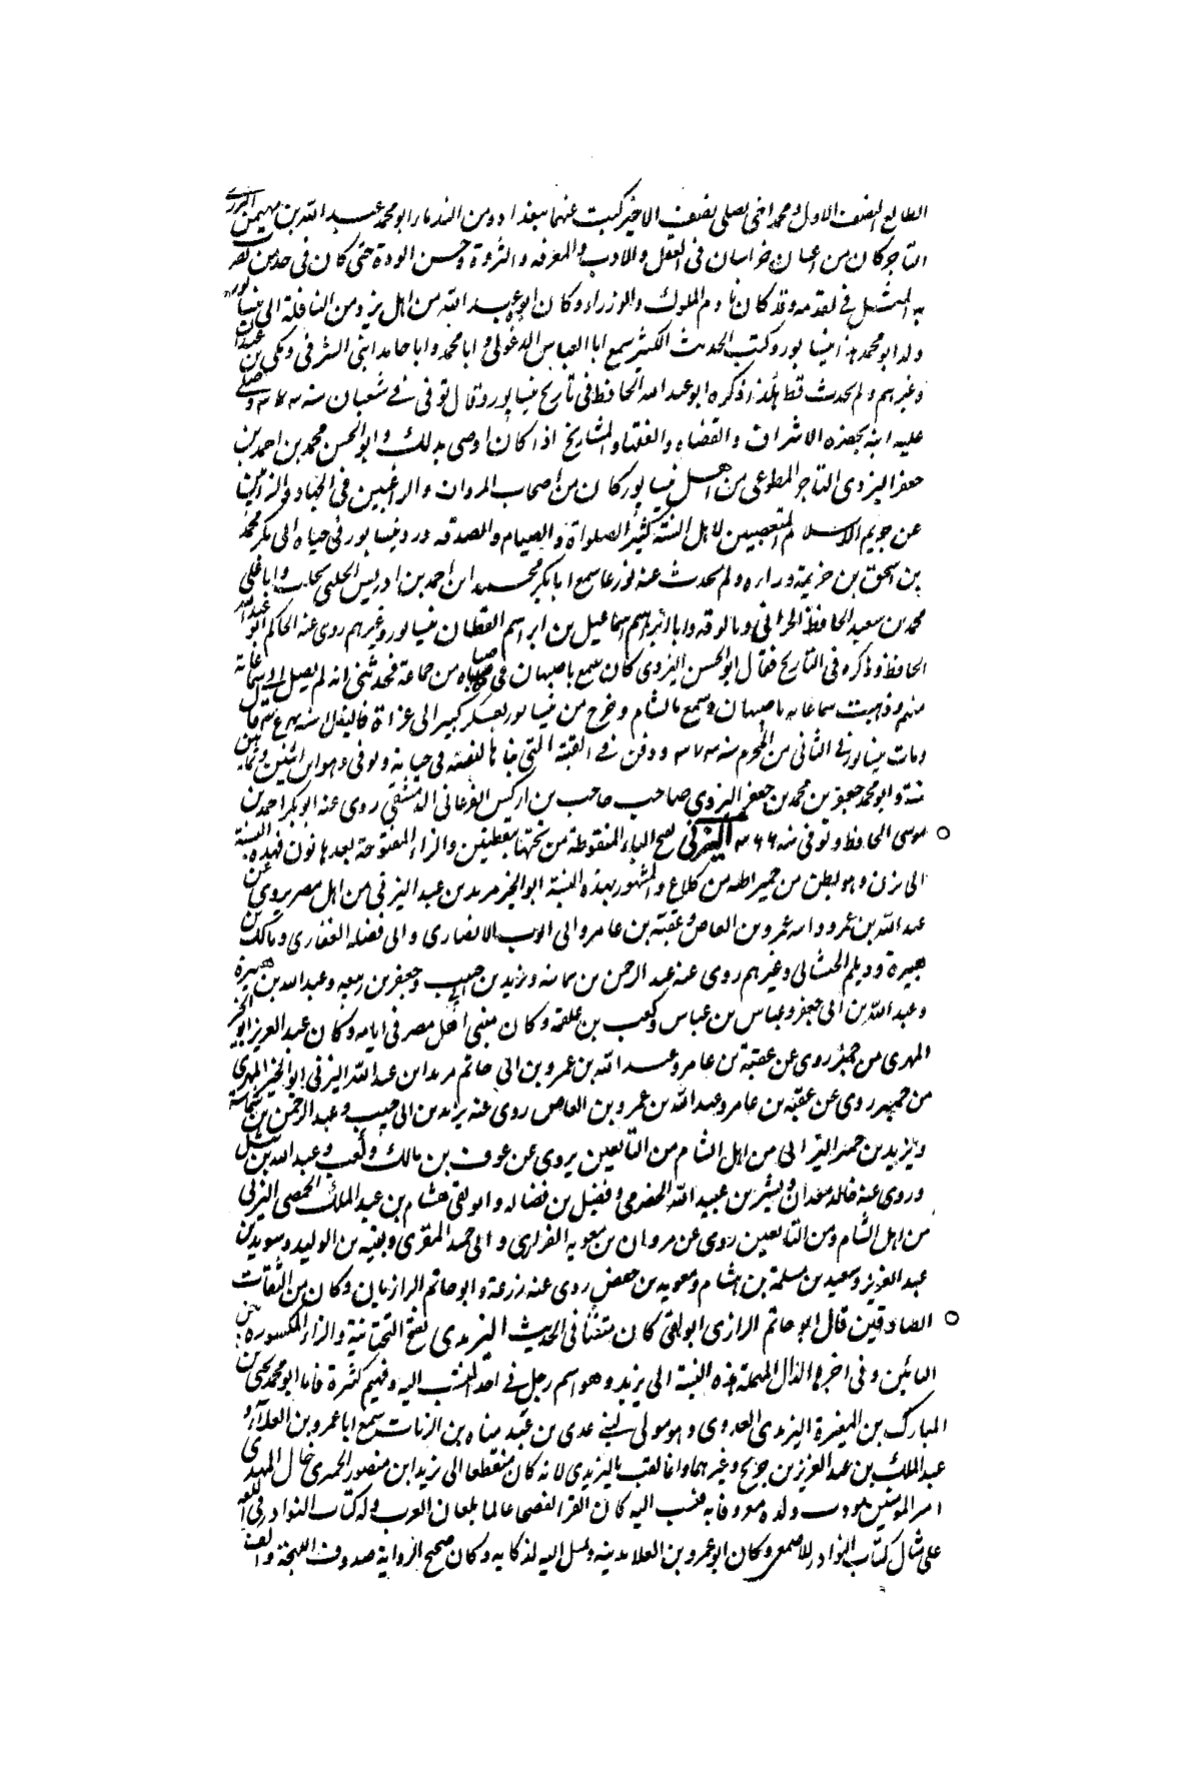 الطالع النصف الاول ومحمد اخى يصلى نصف الاخير كتبت عنهما ببغداد ومن القدماء ابو محمد عبد الله بن
التاجر كان من اعيان خراسان فى العقل والادب والمعرفة والثروة وحسن المودة حتى كان فى حد من
به المثل فى تقدمه وقد كان نادم الملوك والوزراء وكان ابو عبيد الله من اهل يزد من النافلة الى نيسابور
ولد ابو محمد هذا نيسابور وكتب الحديث الكثير سمع ابا العباس الدغولى وابا محمد وابا حامد ابنى الشرقى ومكى بن عبدان
وغيرهم ولم يحدث قط هكذا ذكره ابو عبد الله الحافظ فى تاريخ نيسابور وقال توفى فى شعبان سنه وصلى
عليه ابنه بحضرة الاشراف والقضاه والفقهاء والمشايخ اذا كان اوصى بذلك وابو الحسن محمد بن احمد بن
جعفر اليزدى التاجر المطوعى من اهل نيسابور كان من اصحاب المروات والراغبين فى الجهاد والذابين
عن حريم الاسلام المتعصبين لاهل السنة كثير الصلواة والصيام والصدقه ورد نيسابور فى حياة ابى بكر محمد
بن اسحق بن خزيمة وراه ولم يحدث عنه تورعا سمع ابا بكر محمد بن احمد بن ادريس الحلبى بحلب وابا على
محمد بن سعيد الحافظ الحرانى بالرقه وابا ابراهيم اسماعيل بن ابراهيم القطان نيسابور وغيرهم روى عنه الحاكم ابو عبد الله
الحافظ وذكره فى التاريخ فقال ابو الحسن اليزدى كان سمع باصبهان فى صباه من جماعة فحدثنى انه لم يصل الى سماعاته
منهم وذهبت سماعاته باصبهان وسمع بالشام وخرج من نيسابور بعسكر كبير الى غزاة
ومات بنيسابور فى الثانى من المحرم سنه ودفن فى القبة التى بناها لنفسه فى حياته وتوفى وهو ابن اثنين وثمانين
سنة وابو محمد جعفر بن محمد بن جعفر اليزدى صاحب حاجب بن اركين الفرغانى الدمشقى روى عنه ابو بكر احمد بن
موسى الحافظ وتوفى سنه ٣٦٦ اليزنى بفتح الياء المنقوطة من تحتها بنقطتين والزاء المفتوحة بعدها نون هذه النسبة
الى يزن وهو بطن من حمير اظنه من كلاع والمشهور بهذه النسبة ابو الخير مرثد بن عبد اليزنى من اهل مصر يروى عن
عبد الله بن عمرو واسه عمرو بن العاص وعقبة بن عامر وابى ايوب الانصارى وابى فضله الغفارى ومالك بن
هبيرة وديلم الجيشانى وغيرهم روى عنه عبد الرحمن بن شماسه ويزيد بن ابى حبيب وجعفر بن ربيعه وعبد الله بن هبيرة
وعبد الله بن ابى جعفر وعياس بن عباس وكعب بن علقمه وكان مفتى اهل مصر فى ايامه وكان عبد العزيز
المهرى من حمير روى عن عقبة بن عامر وعبد الله بن عمرو بن ابى حاتم مرثد ابن عبد الله اليزنى ابو الخير المهرى
من حمير روى عن عقبه بن عامر وعبد الله بن عمرو بن العاص روى عنه يزيد بن ابى حبيب وعبد الرحمن بن شماسة
ويزيد بن حمير اليزنى من اهل الشام من التابعين يروى عن عوف بن مالك وكعب وعبد الله بن بسر
وروى عنه خالد معدان وبشر بن عبيد الله الحضرمى وفضيل بن فضاله وابو تقى هشام بن عبد الملك الحمصى اليزنى
من اهل الشام ومن التابعين روى عن مروان بن معويه الفزارى وابى حميد المقرى وبقيه بن الوليد وسويد بن
عبد العزيز وسعيد بن مسلمة بن هشام ومعويه بن حفص روى عنه زرعة وابو حاتم الرازيان وكان من الثقات
الصادقين قال ابو حاتم الرازى ابو تقى كان متقنا فى الحديث اليزيدى بفتح التحتانية والزاء المكسورة بين
اليائين وفى اخرها الدال المهملة هذه النسبة الى يزيد وهو اسم رجل فى اجداد المنتسب اليه وفيهم كثرة فاما ابو محمد يحيى بن
المبارك بن المغيرة اليزيدى العدوى وهو مولى لبنى عدى بن عبد مناه بن الزيات سمع ابا عمرو بن العلاء و
عبد الملك بن عبد العزيز بن جريج وغيرهما وانما لقب باليزيدى لانه كان منقطعا الى يزيد ابن منصور الحميرى خال المهدى
امير المؤمنين مودب ولده معروفا به فنسب اليه كان القرا الفصى عالما بلغات العرب وله كتاب النوادر فى اللغه
على مثال كتاب النوادر للاصمعى وكان ابو عمرو بن العلا يدينه ويميل اليه لذكايه وكان صحيح الرواية صدوق اللهجة